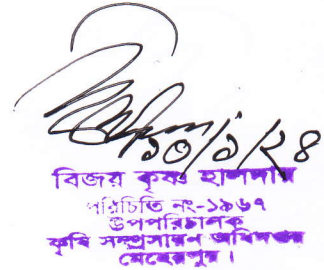 ১০/১/২৪
বিজয় কৃষ্ণ হালদার
পরিচিতি নং-১৯৬৭
উপপরিচালক
কৃষি সম্প্রসারণ অধিদপ্তর
মেহেরপুর।